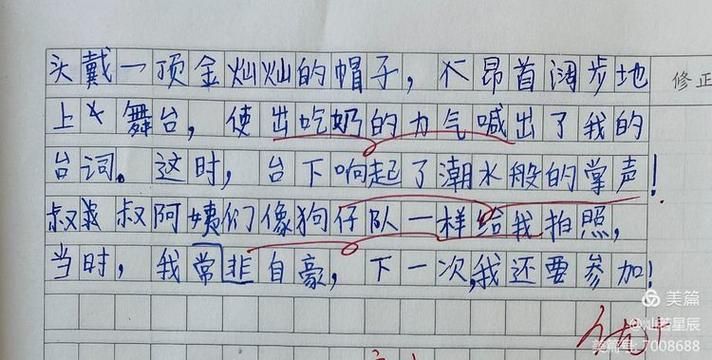 头戴一顶金灿灿的帽子，昂首阔步地
上舞台，使出吃奶的力气喊出了我的
台词。这时，台下响起了潮水般的掌声！
叔叔阿姨们像狗仔队一样给我拍照，
当时，我常非自豪，下一次，我还要参加！
修正
美篇
@灿若星辰
美篇号：7008688